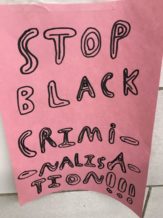 STOP
BLACK
CRIMI-
-NALISA-
TION!!!